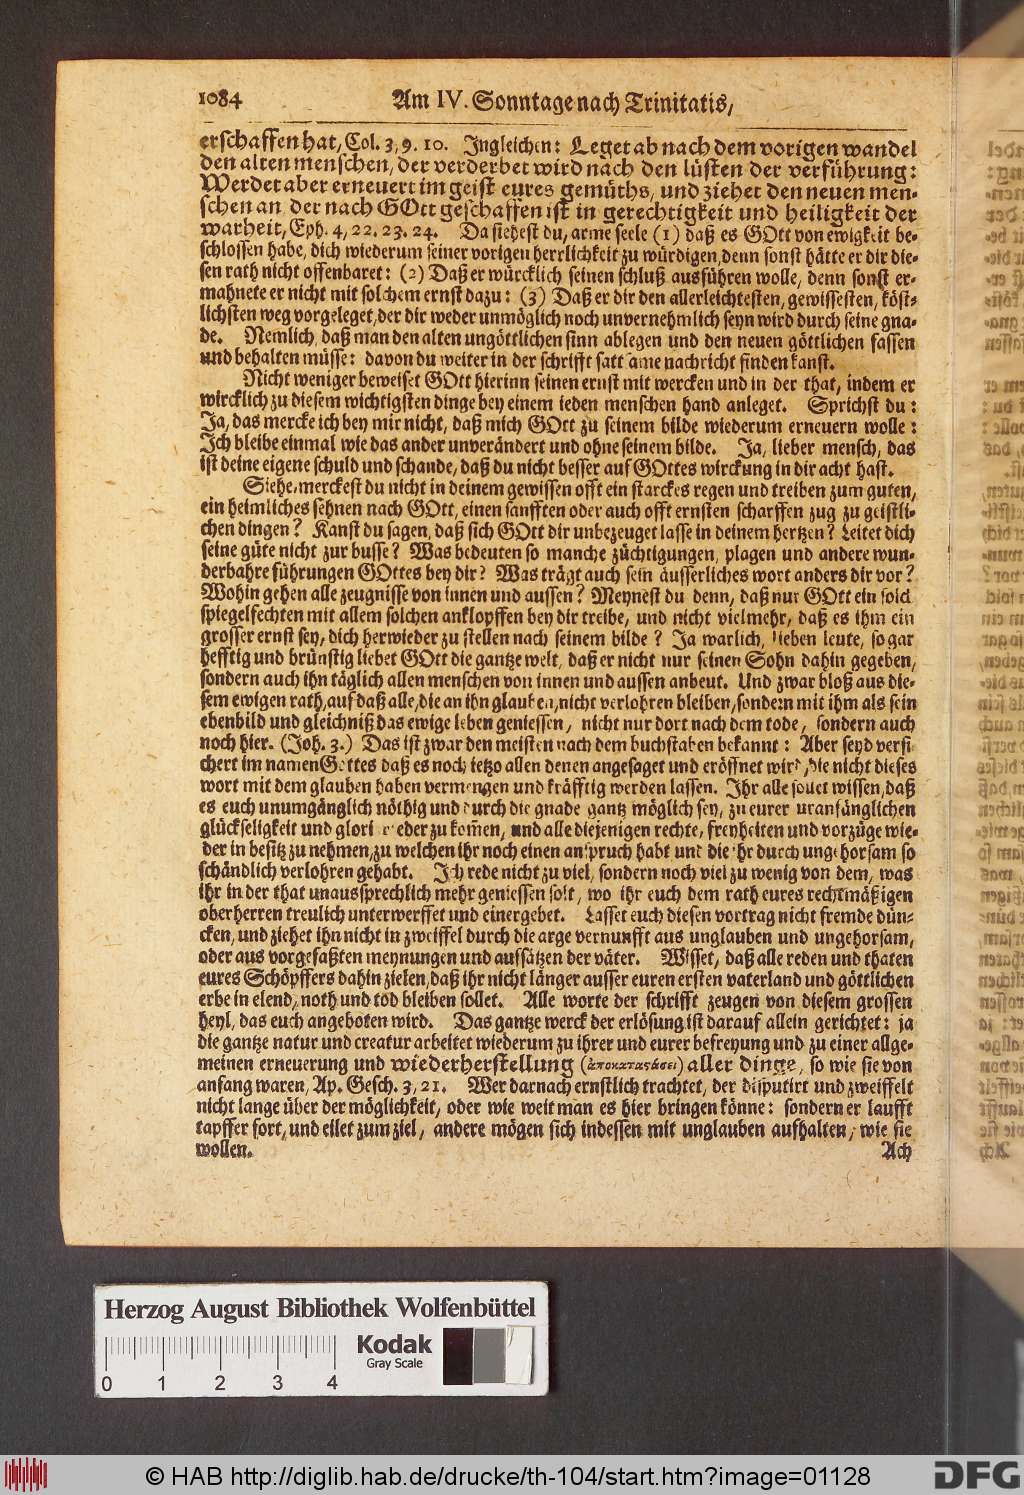 1084 Am IV. Sonntage nach Trinitatis,
erschaffen hat, Col. 3, 9. 10. Ingleichen: Leget ab nach dem vorigen wandel
den alten menschen, der verderbet wird nach den lüsten der verführung:
Werdet aber erneuert im geist eures gemüths, und ziehet den neuen men-
schen an, der nach GOtt geschaffen ist in gerechtigkeit und heiligkeit der
warheit, Eph. 4, 22. 23. 24. Da siehest du, arme seele (1) daß es GOtt von ewigkeit be-
schlossen habe, dich wiederum seiner vorigen herrlichkeit zu würdigen, denn sonst hätte er dir die-
sen rath nicht offenbaret: (2) Daß er würcklich seinen schluß ausführen wolle, denn sonst er-
mahnete er nicht mit solchem ernst dazu: (3) Daß er dir den allerleichtesten, gewissesten, köst-
lichsten weg vorgeleget, der dir weder unmöglich noch unvernehmlich seyn wird durch seine gna-
de. Nemlich, daß man den alten ungöttlichen sinn ablegen und den neuen göttlichen fassen
und behalten müsse: davon du weiter in der schrifft satt same nachricht finden kanst.
Nicht weniger beweiset GOtt hierinn seinen ernst mit wercken und in der that, indem er
wircklich zu diesem wichtigsten dinge bey einem ieden menschen hand anleget. Sprichst du:
Ja, das mercke ich bey mir nicht, daß mich GOtt zu seinem bilde wiederum erneuern wolle:
Ich bleibe einmal wie das ander unverändert und ohne seinem bilde. Ja, lieber mensch, das
ist deine eigene schuld und schande, daß du nicht besser auf GOttes wirckung in dir acht hast.
Siehe, merckest du nicht in deinem gewissen offt ein starckes regen und treiben zum guten,
ein heimliches sehnen nach GOtt, einen sanfften oder auch offt ernsten scharffen zug zu geistli-
chen dingen? Kanst du sagen, daß sich GOtt dir unbezeuget lasse in deinem hertzen? Leitet dich
seine güte nicht zur busse? Was bedeuten so manche züchtigungen, plagen und andere wun-
derbahre führungen GOttes bey dir? Was trägt auch sein äusserliches wort anders dir vor?
Wohin gehen alle zeugnisse von innen und aussen? Meynest du denn, daß nur GOtt ein solch
spiegelfechten mit allem solchen anklopffen bey dir treibe, und nicht vielmehr, daß es ihm ein
grosser ernst sey, dich herwieder zu stellen nach seinem bilde? Ja warlich, lieben leute, so gar
hefftig und brünstig liebet GOtt die gantze welt, daß er nicht nur seinen Sohn dahin gegeben,
sondern auch ihn täglich allen menschen von innen und aussen anbeut. Und zwar bloß aus die-
sem ewigen rath, auf daß alle, die an ihn glauben, nicht verlohren bleiben, sondern mit ihm als sein
ebenbild und gleichniß das ewige leben geniessen, nicht nur dort nach dem tode, sondern auch
noch hier. (Joh. 3.) Das ist zwar den meisten nach dem buchstaben bekannt: Aber seyd versi
chert im namen Gottes daß es noch ietzo allen denen angesaget und eröffnet wird, die nicht dieses
wort mit dem glauben haben vermengen und kräfftig werden lassen. Ihr alle sollet wissen, daß
es euch unumgänglich nöthig und durch die gnade gantz möglich sey, zu eurer uranfänglichen
glückseligkeit und glori wieder zu kom̃en, und alle diejenigen rechte, freyheiten und vorzüge wie-
der in besitz zu nehmen, zu welchen ihr noch einen anspruch habt und die ihr durch ungehorsam so
schändlich verlohren gehabt. Ich rede nicht zu viel, sondern noch viel zu wenig von dem, was
ihr in der that unaussprechlich mehr geniessen solt, wo ihr euch dem rath eures rechtmäßigen
oberherren treulich unterwerffet und einergebet. Lasset euch diesen vortrag nicht fremde dün-
cken, und ziehet ihn nicht in zweiffel durch die arge vernunfft aus unglauben und ungehorsam,
oder aus vorgefaßten meynungen und aufsätzen der väter. Wisset, daß alle reden und thaten
eures Schöpffers dahin zielen, daß ihr nicht länger ausser euren ersten vaterland und göttlichen
erbe in elend, noth und tod bleiben sollet. Alle worte der schrifft zeugen von diesem grossen
heyl, das euch angeboten wird. Das gantze werck der erlösung ist darauf allein gerichtet: ja
die gantze natur und creatur arbeitet wiederum zu ihrer und eurer befreyung und zu einer allge-
meinen erneuerung und wiederherstellung (ἀποκαταςάσει) aller dinge, so wie sie von
anfang waren, Ap. Gesch. 3, 21. Wer darnach ernstlich trachtet, der disputirt und zweiffelt
nicht lange über der möglichkeit, oder wie weit man es hier bringen könne: sondern er laufft
tapffer fort, und eilet zum ziel, andere mögen sich indessen mit unglauben aufhalten, wie sie
wollen. Ach
Herzog August Bibliothek Wolfenbüttel
Kodak
Gray Scale
0 1 2 3 4
© HAB http://diglib.hab.de/drucke/th-104/start.htm?image=01128
DFG